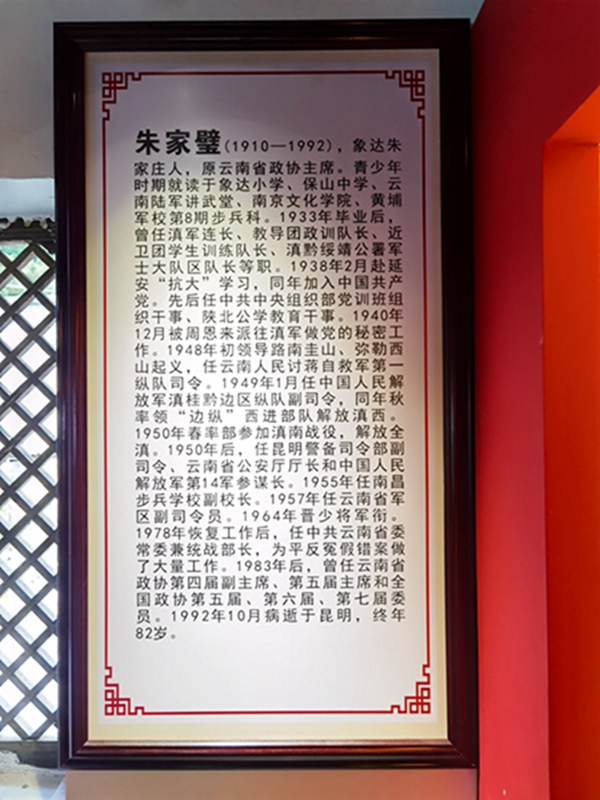 朱家璧(1910—1992)，象达朱
家庄人，原云南省政协主席。青少年
时期就读于象达小学、保山中学、云
南陆军讲武堂、南京文化学院、黄埔
军校第8期步兵科。1933年毕业后，
曾任滇军连长、教导团政训队长、近
卫团学生训练队长、滇黔绥靖公署军
士大队区队长等职。1938年2月赴延
安“抗大”学习，同年加入中国共产
党。先后任中共中央组织部党训班组
织干事、陕北公学教育干事。1940年
12月被周恩来派往滇军做党的秘密工
作。1948年初领导路南圭山、弥勒西
山起义，任云南人民讨蒋自救军第一
纵队司令。1949年1月任中国人民解
放军滇桂黔边区纵队副司令，同年秋
率领“边纵”西进部队解放滇西。
1950年春率部参加滇南战役，解放全
滇。1950年后，任昆明警备司令部副
司令、云南省公安厅厅长和中国人民
解放军第14军参谋长。1955年任南昌
步兵学校副校长。1957年任云南省军
区副司令员。1964年晋少将军衔。
1978年恢复工作后，任中共云南省委
常委兼统战部长，为平反冤假错案做
了大量工作。1983年后，曾任云南省
政协第四届副主席、第五届主席和全
国政协第五届、第六届、第七届委
员。1992年10月病逝于昆明，终年
82岁。